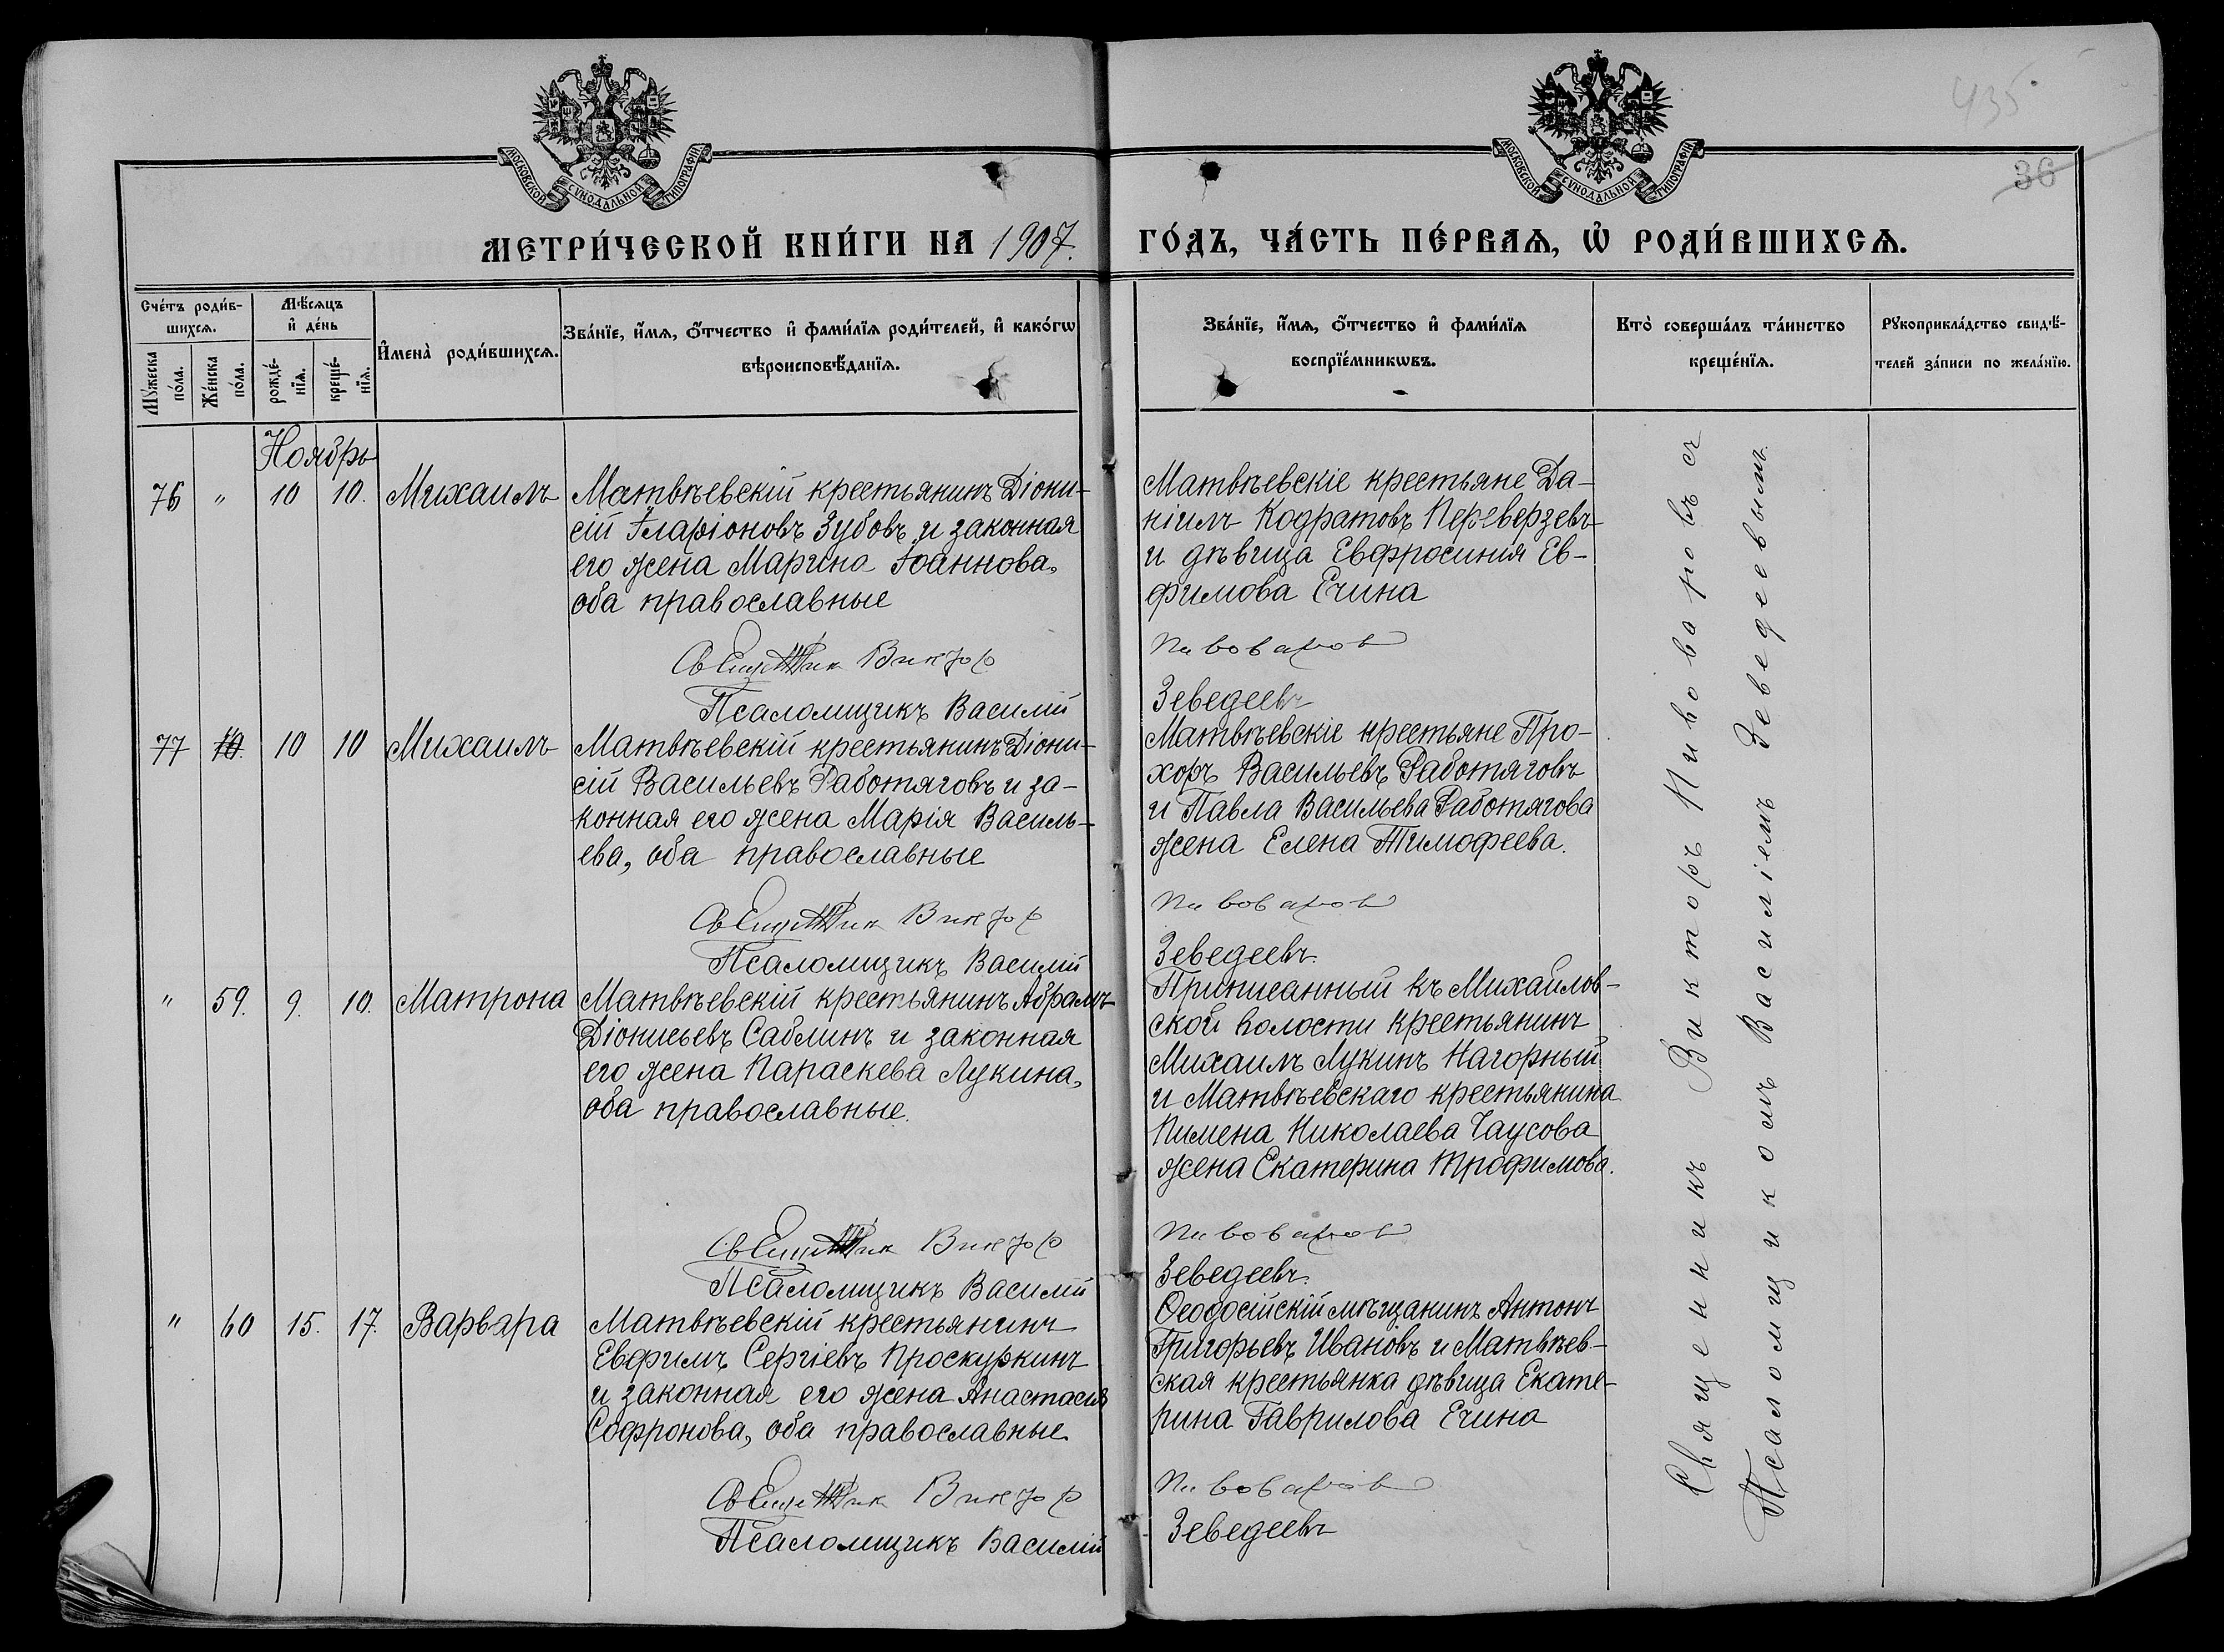 435
36
МОСКОВСКОЙ СѴНОДАЛЬНОЙ ТИПОГРАФІИ
МОСКОВСКОЙ СѴНОДАЛЬНОЙ ТИПОГРАФІИ
МЕТРИ́ЧЕСКОЙ КНИ́ГИ НА 1907. ГО́ДЪ, ЧА́СТЬ ПЕ́РВАЯ, Ѡ҆ РОДИ́ВШИХСѦ.
Сче́тъ роди́в-
шихсѧ.
Мꙋ́жеска
по́ла.
Же́нска
по́ла.
Мѣ́сѧцъ
и҆ де́нь
рожде́-
нїѧ.
креще́-
нїѧ.
И҆мена̀ роди́вшихсѧ.
Зва́нїе, и҆́мѧ, ѻ҆́тчество и҆ фами́лїѧ роди́телей, и҆ како́гѡ
вѣроисповѣ́данїѧ.
Зва́нїе, и҆́мѧ, ѻ҆́тчество и҆ фами́лїѧ
воспрїе́мникѡвъ.
Кто̀ соверша́лъ та́инство
креще́нїѧ.
Рꙋкоприкла́дство свидѣ́-
телей за́писи по жела́нїю.
Ноябрь
76 " 10 10. Михаилъ
Матвѣевскій крестьянинъ Діони-
сій Иларіоновъ Зубовъ и законная
его жена Марина Іоаннова,
оба православные
Священник Виктор
Псаломщикъ Василій
Матвѣевскіе крестьяне Да-
ніилъ Кодратовъ Переверзевъ
и дѣвица Евфросинія Ев-
фимова Ечина
Пивоваров
Зеведеевъ
77 10. 10 10 Михаилъ
Матвѣевскій крестьянинъ Діони-
сій Васильевъ Работяговъ и за-
конная его жена Марія Василь-
ева, оба православные
Священник Виктор
Псаломщикъ Василій
Матвѣевскіе крестьяне Про-
хоръ Васильевъ Работяговъ
и Павла Васильева Работягова
жена Елена Тимофеева.
Пивоваров
Зеведеевъ.
" 59. 9. 10. Матрона
Матвѣевскій крестьянинъ Абрамъ
Діонисьевъ Саблинъ и законная
его жена Параскева Лукина,
оба православные.
Священник Виктор
Псаломщикъ Василій
Приписанный къ Михайлов-
ской волости крестьянинъ
Михаилъ Лукинъ Нагорный
и Матвѣевскаго крестьянина
Пимена Николаева Чаусова
жена Екатерина Трофимова.
Пивоваров
Зеведеевъ.
" 60 15. 17. Варвара
Матвѣевскій крестьянинъ
Евфимъ Сергіевъ Проскуркинъ
и законная его жена Анастасія
Софронова, оба православные
Священник Виктор
Псаломщикъ Василій
Ѳеодосійскій мѣщанинъ Антонъ
Григорьевъ Ивановъ и Матвѣев-
ская крестьянка дѣвица Екате-
рина Гаврилова Ечина
Пивоваров
Зеведеевъ
Священникъ Викторъ Пивоваровъ съ
Псаломщикомъ Василіемъ Зеведеевымъ.